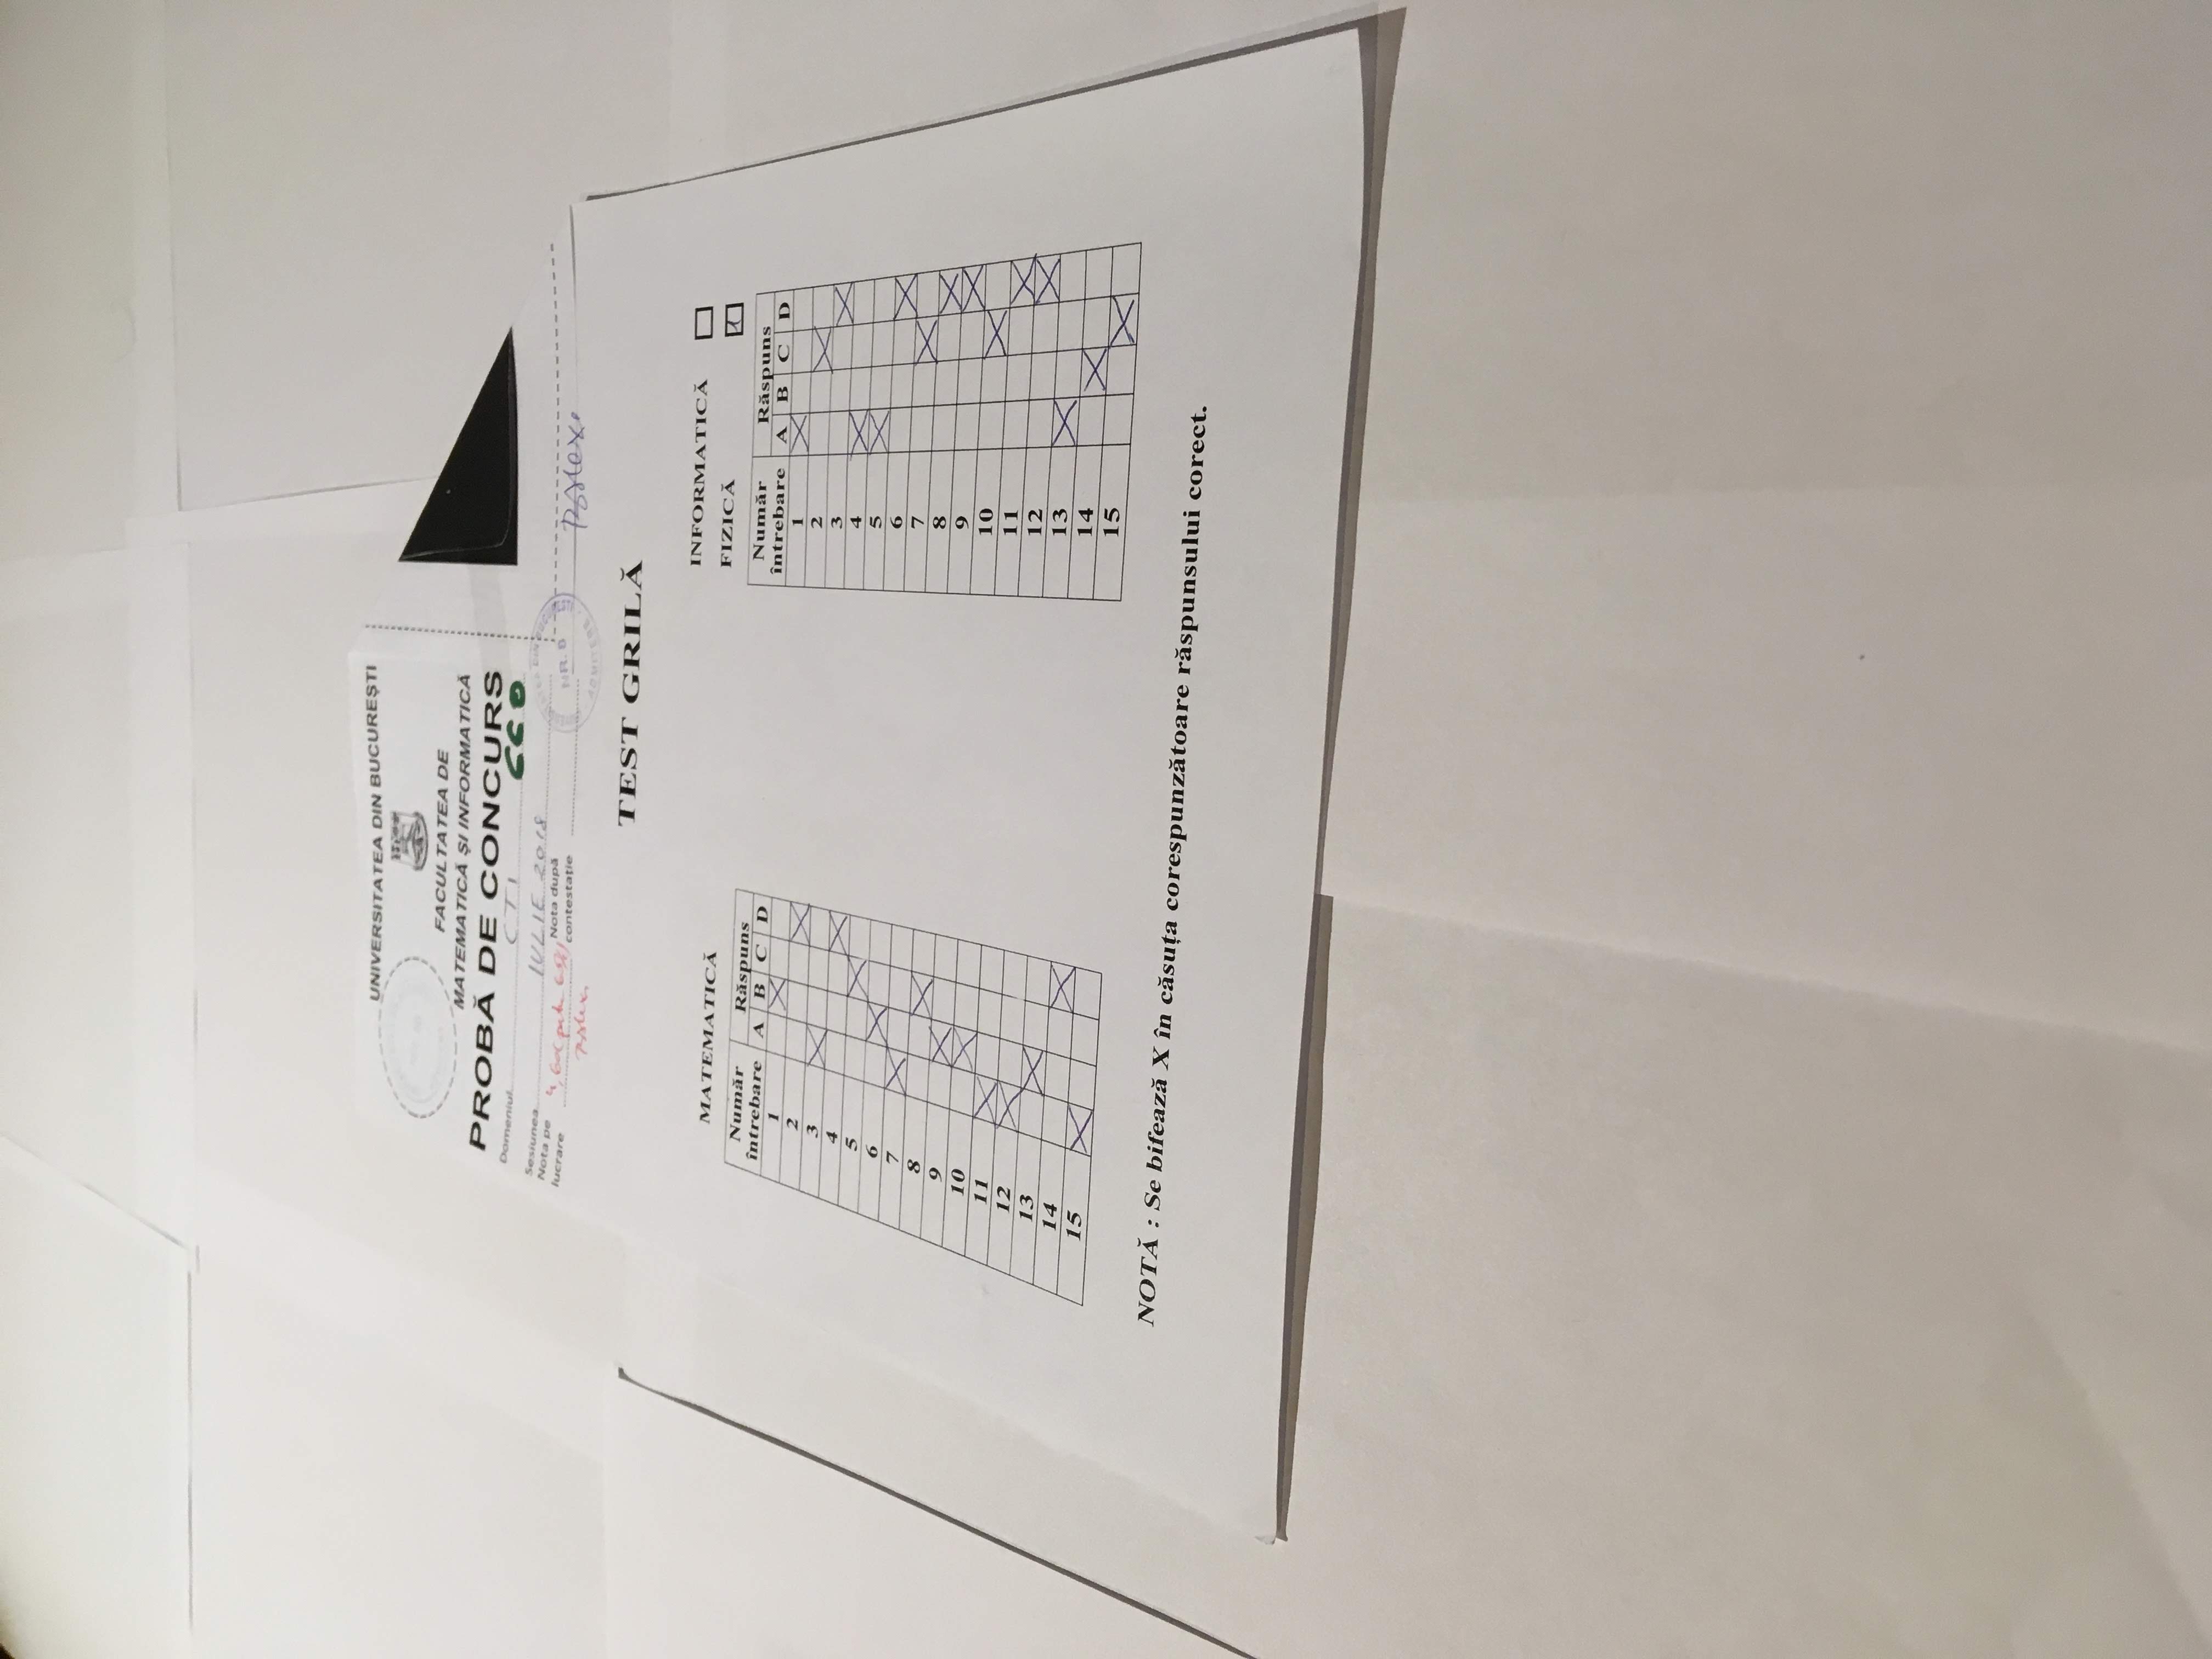 UNIVERSITATEA DIN BUCUREȘTI
FACULTATEA DE
MATEMATICĂ ȘI INFORMATICĂ
PROBĂ DE CONCURS
Domeniul CTI
Sesiunea IULIE 2018
Nota pe lucrare 4,60
Nota după contestație
NR. 8
ADMITERE
TEST GRILĂ
MATEMATICĂ
Număr întrebare Răspuns
A B C D
1 X
2 X
3 X
4 X
5 X
6 X
7 X
8 X
9 X
10 X
11 X
12 X
13 X
14 X
15 X
INFORMATICĂ
FIZICĂ
Număr întrebare Răspuns
A B C D
1 X
2 X
3 X
4 X
5 X
6 X
7 X
8 X
9 X
10 X
11 X
12 X
13 X
14 X
15 X
NOTĂ : Se bifează X în căsuța corespunzătoare răspunsului corect.